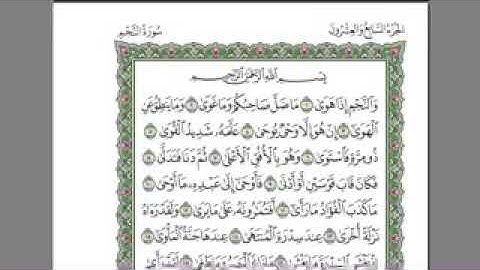 الجزء السابع والعشرون
سورة النجم
بسم الله الرحمن الرحيم
والنجم إذا هوى ۝١ ما ضل صاحبكم وما غوى ۝٢ وما ينطق عن
الهوى ۝٣ إن هو إلا وحي يوحى ۝٤ علمه شديد القوى ۝٥
ذو مرة فاستوى ۝٦ وهو بالأفق الأعلى ۝٧ ثم دنا فتدلى ۝٨
فكان قاب قوسين أو أدنى ۝٩ فأوحى إلى عبده ما أوحى ۝١٠
ما كذب الفؤاد ما رأى ۝١١ أفتمارونه على ما يرى ۝١٢ ولقد رءاه
نزلة أخرى ۝١٣ عند سدرة المنتهى ۝١٤ عندها جنة المأوى ۝١٥
إذ يغشى السدرة ما يغشى